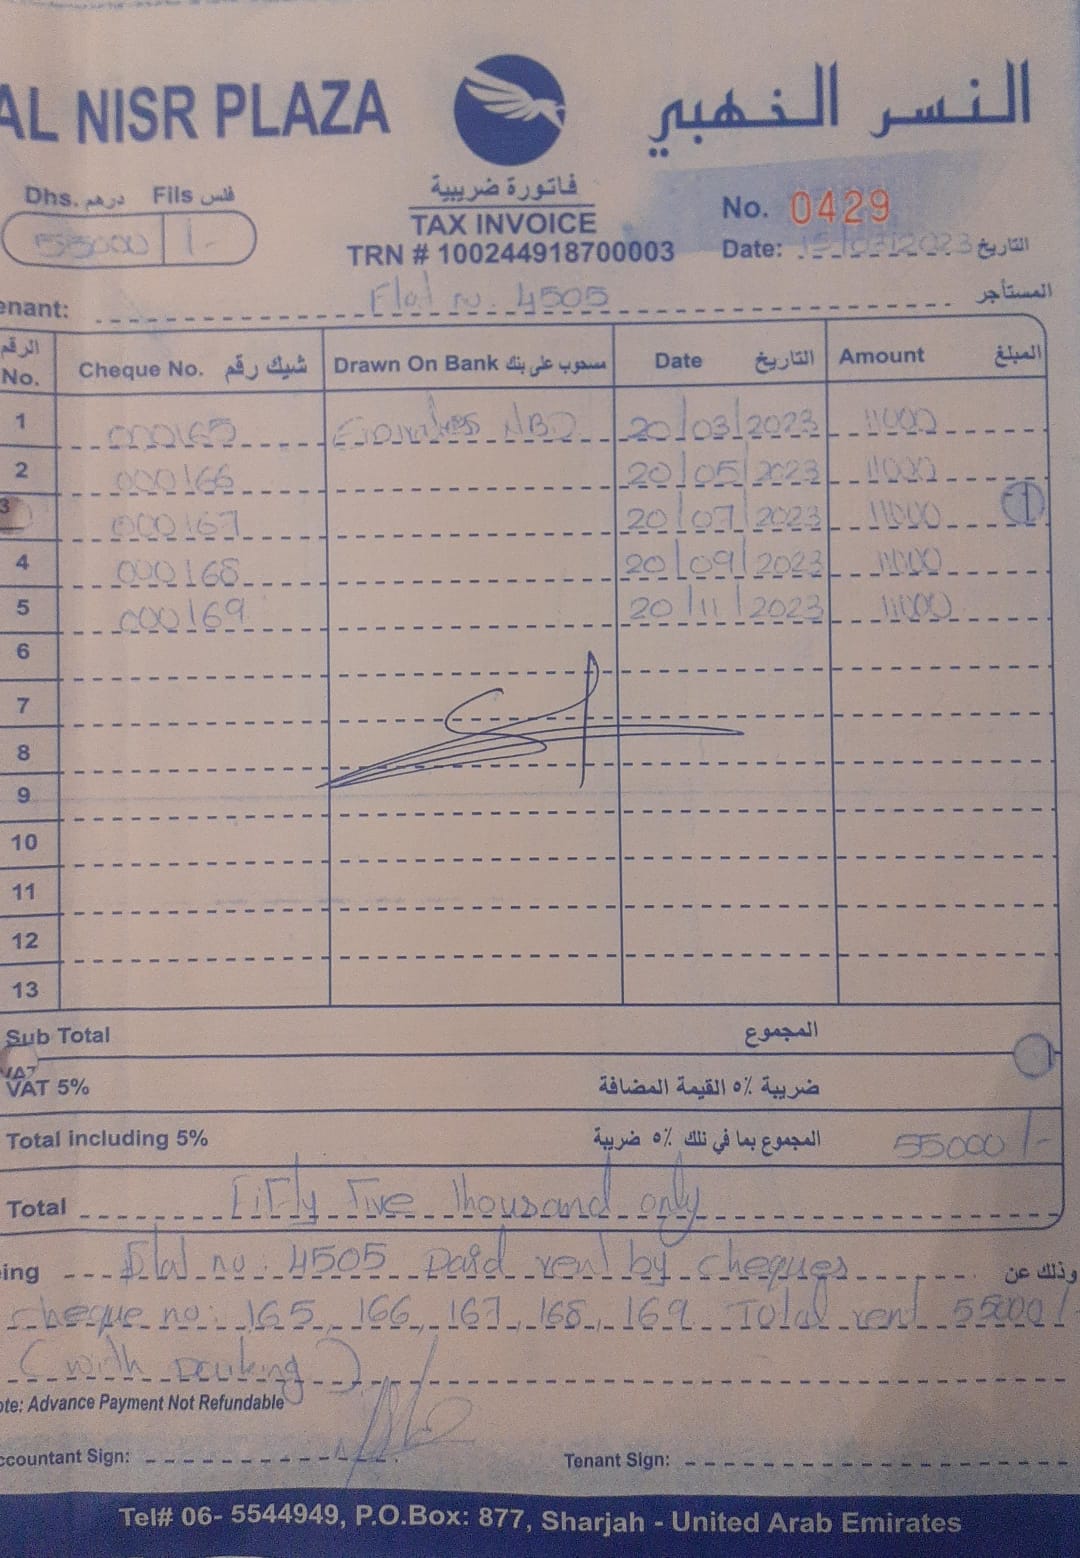 AL NISR PLAZA
النسر الذهبي
Dhs. درهم Fils فلس
55000 /-
فاتورة ضريبية
TAX INVOICE
TRN # 100244918700003
No. 0429
Date: 15/03/2023 التاريخ
enant: Flat no. 4505 المستأجر
الرقم No. Cheque No. شيك رقم Drawn On Bank مسحوب على بنك Date التاريخ Amount المبلغ
1 000165 Emirates NBD 20/03/2023 11000
2 000166 20/05/2023 11000
3 000167 20/07/2023 11000
4 000168 20/09/2023 11000
5 000169 20/11/2023 11000
6
7
8
9
10
11
12
13
Sub Total المجموع
VAT 5% ضريبة ٥٪ القيمة المضافة
Total including 5% المجموع بما في تلك ٥٪ ضريبة 55000/-
Total Fifty Five Thousand only
ing Flat no. 4505 Paid rent by cheques وذلك عن
cheque no: 165, 166, 167, 168, 169 Total rent 55000/-
(with parking)
ote: Advance Payment Not Refundable
ccountant Sign: Tenant Sign:
Tel# 06- 5544949, P.O.Box: 877, Sharjah - United Arab Emirates